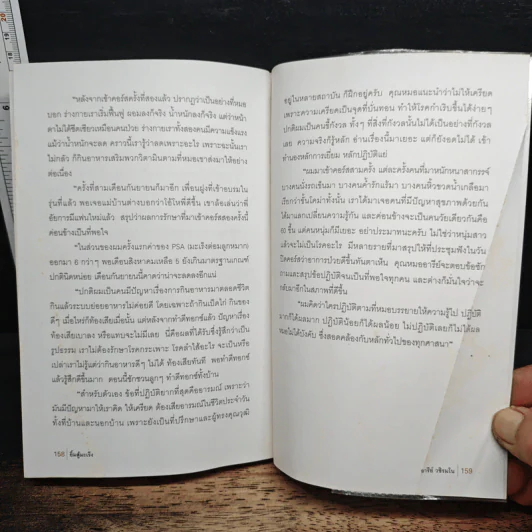 "หลังจากเข้าคอร์สครั้งที่สองแล้ว ปรากฏว่าเป็นอย่างที่หมอ
บอก ร่างกายเราเริ่มฟื้นฟู ผอมลงก็จริง น้ำหนักลงก็จริง แต่ว่าหน้า
ตาไม่ได้ซีดเซียวเหมือนคนป่วย ร่างกายเราทั้งสองคนมีความแข็งแรง
แม้ว่าน้ำหนักจะลด คราวนี้เรารู้ว่าลดเพราะอะไร เพราะฉะนั้นเรา
ไม่กลัว ก็กินอาหารเสริมพวกวิตามินตามที่หมอเขาส่งมาให้อย่าง
ต่อเนื่อง
"ครั้งที่สามเดือนกันยายนก็มาอีก เพื่อนฝูงที่เข้าอบรมใน
รุ่นที่แล้ว พอเจอแม่บ้านต่างบอกว่าโอ้โหพี่ดีขึ้น เขาล้อเล่นว่าพี่
อัยการมีแฟนใหม่แล้ว สรุปว่าผลการรักษาที่มาเข้าคอร์สสองครั้งนี้
ค่อนข้างเป็นที่พอใจ
"ในส่วนของผมครั้งแรกค่าของ PSA (มะเร็งต่อมลูกหมาก)
ออกมา 6 กว่าๆ พอเดือนสิงหาคมเหลือ 5 ยังเกินมาตรฐานเกณฑ์
ปกตินิดหน่อย เดือนกันยายนนี้คาดว่าน่าจะลดลงอีกแน่
"ปกติผมเป็นคนมีปัญหาเรื่องการกินอาหารมาตลอดชีวิต
กินแล้วระบบย่อยอาหารไม่ค่อยดี โดยเฉพาะถ้ากินเผ็ดไป กินของ
ดีๆ เมื่อไหร่ก็ท้องเสียเมื่อนั้น แต่หลังจากทำดีทอกซ์แล้ว ปัญหาเรื่อง
ท้องเสียเบาลง หรือแทบจะไม่มีเลย นี่คือผลที่ได้รับซึ่งรู้สึกว่าเป็น
รูปธรรม เราไม่ต้องรักษาโรคกระเพาะ โรคลำไส้อะไร จะเป็นหรือ
เปล่าเราไม่รู้แต่ว่ากินอาหารดีๆ ไม่ได้ ท้องเสียทันที พอทำดีทอกซ์
แล้วรู้สึกดีขึ้นมาก ตอนนี้ชักชวนลูกๆ ทำดีทอกซ์ทั้งบ้าน
"สำหรับตัวเอง ข้อที่ปฏิบัติยากที่สุดคืออารมณ์ เพราะว่า
มันมีปัญหามาให้เราคิด ให้เครียด ต้องเสียอารมณ์ในชีวิตประจำวัน
ทั้งที่บ้านและนอกบ้าน เพราะยังเป็นที่ปรึกษาและผู้ทรงคุณวุฒิ
158 ยิ้มสู้มะเร็ง
อยู่ในหลายสถาบัน ก็ฝึกอยู่ครับ คุณหมอแนะนำว่าไม่ให้เครียด
เพราะความเครียดเป็นจุดที่บั่นทอน ทำให้โรคกำเริบขึ้นได้ง่ายๆ
ปกติผมเป็นคนขี้กังวล ทั้งๆ ที่สิ่งที่กังวลนั้นไม่ได้เป็นอย่างที่กังวล
เลย ความจริงก็รู้หลัก อ่านเรื่องนี้มาเยอะ แต่ก็ยังอดไม่ได้ เข้า
ทำนองหลักการเยี่ยม หลักปฏิบัติแย่
"ผมมาเข้าคอร์สสามครั้ง แต่ละครั้งที่มาหนักหนาสาหัสกรรจ์
บางคนนั่งรถเข็นมา บางคนค้ำรักแร้มา บางคนหิ้วขวดน้ำเกลือมา
เรียกว่าชั้นโคม่าทั้งนั้น เราได้มาเจอคนที่มีปัญหาสุขภาพด้วยกัน
ได้มาแลกเปลี่ยนความรู้กัน และค่อนข้างจะเป็นคนวัยเดียวกันคือ
60 ขึ้น แต่คนหนุ่มก็มีเยอะ อย่าประมาทนะครับ ไม่ใช่ว่าหนุ่มสาว
แล้วจะไม่เป็นโรคอะไร มีหลายรายที่มาสรุปให้ที่ประชุมฟังในวัน
ปิดคอร์สว่าอาการป่วยดีขึ้นทันตาเห็น คุณหมออารีย์จะตอบข้อซัก
ถามและสรุปข้อปฏิบัติจนเป็นที่พอใจทุกคน และต่างก็มั่นใจว่าจะ
กลับมาอีกในสภาพที่ดีขึ้น
"ผมคิดว่าใครปฏิบัติตามที่หมอบรรยายให้ความรู้ไป ปฏิบัติ
มากก็ได้ผลมาก ปฏิบัติน้อยก็ได้ผลน้อย ไม่ปฏิบัติเลยก็ไม่ได้ผล
หมอไม่ได้บังคับ ซึ่งสอดคล้องกับหลักทั่วไปของทุกศาสนา"
อารีย์ วชิรมโน 159